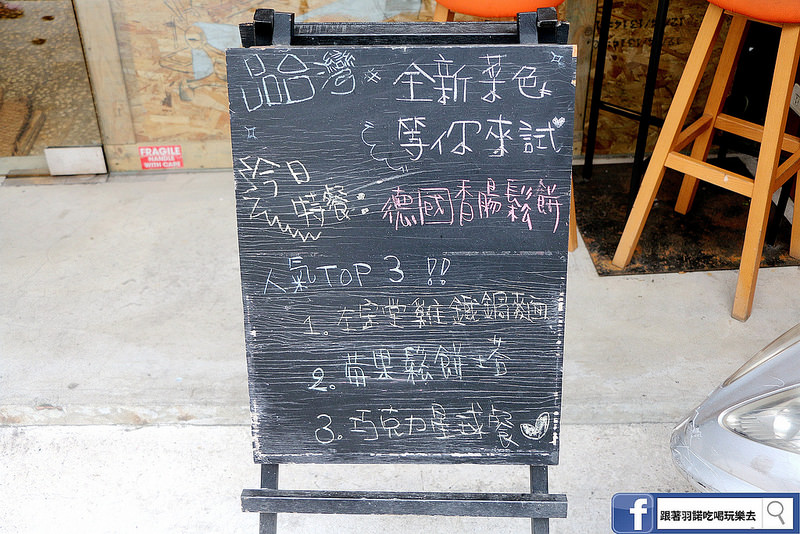 品台灣
全新菜色
等你來試
今日
特餐:
德國香腸鬆餅
人氣TOP 3 !!
1. 左宗堂雞鐵鍋麵
2. 莓果鬆餅塔
3. 巧克力星球餐
FRAGILE
HANDLE
WITH CARE
f 跟著羽諾吃喝玩樂去